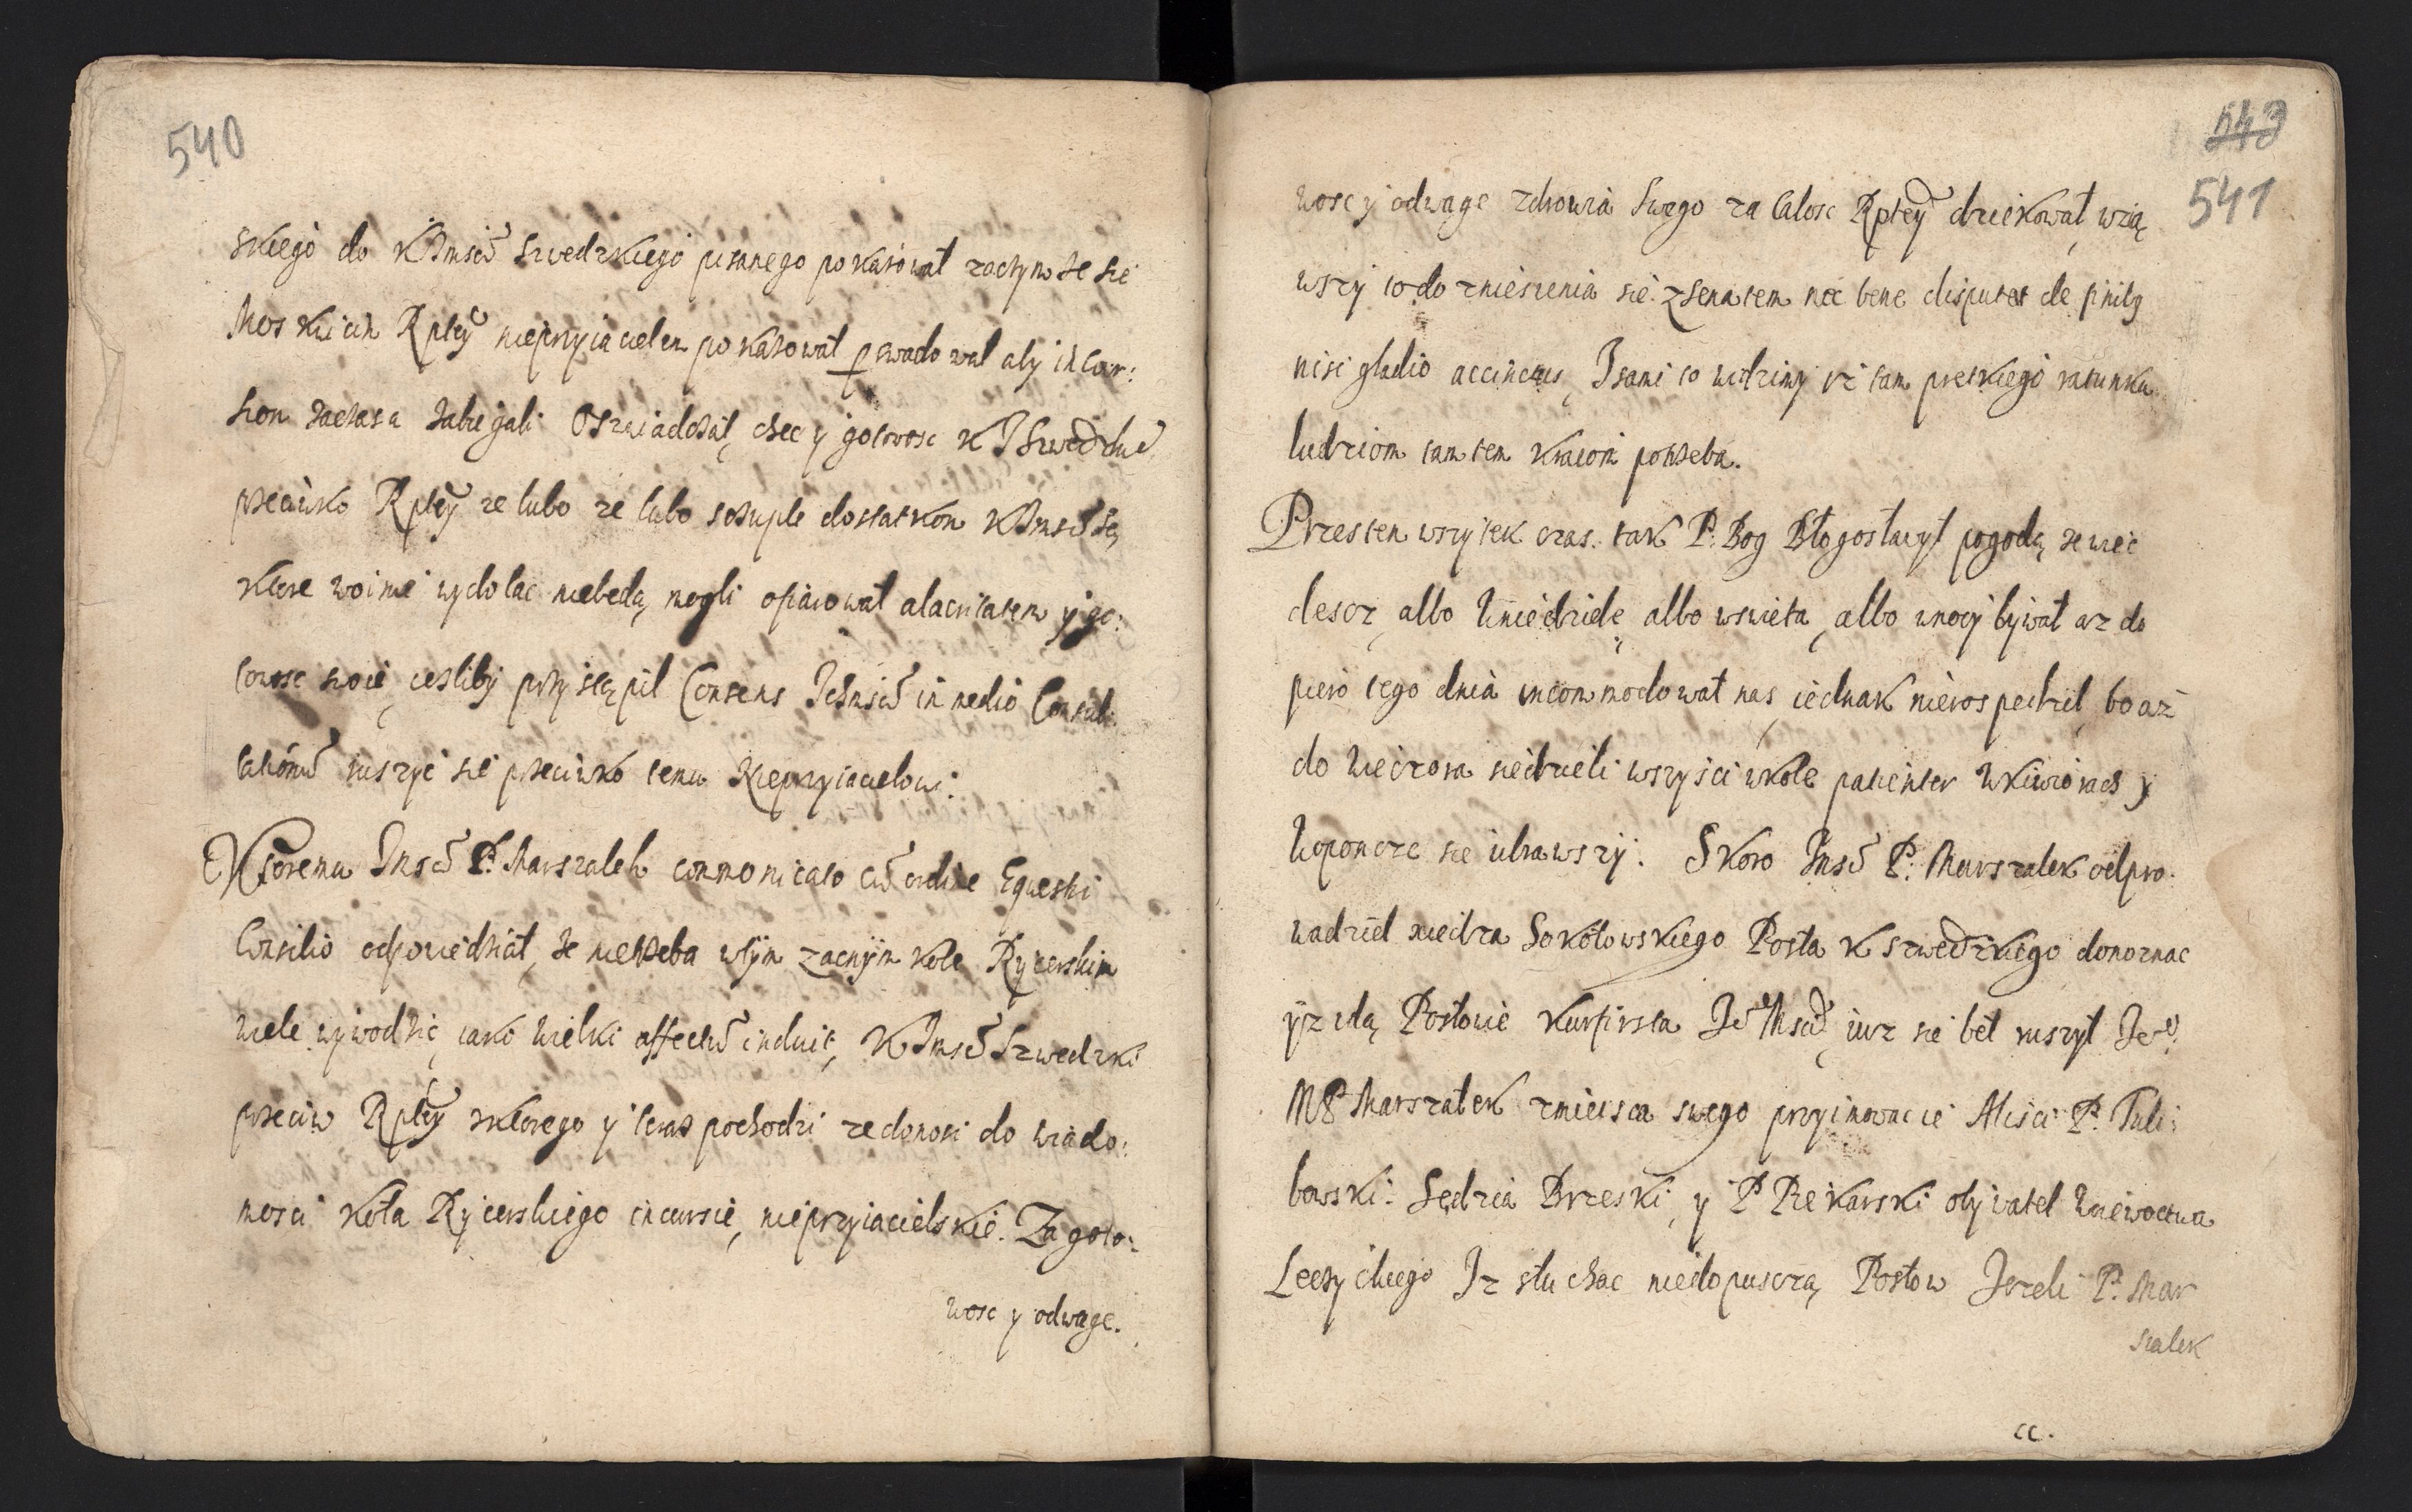 540
skiego do KJmsci Szwedzkiego pisanego pokazował zaczym że się
Moskwicin Rptey nieprzyiacielem pokazował perswadował aby incur:
sion zaczasu zabiegali Oswiadczał chec y gotowosc K J Szwedzkie
przeciwko Rptey ze lubo ze lubo szczuple dostatkow KJmsci są
ktore woinie wydolac niebedą mogli ofiarował alacritatem y go:
towosc swoię iesliby przystąpił Consens Ichmsci in medio Consul:
tationu ruszyc się przeciwko temu Nieprzyiacielowi.
Ktoremu Jmsc P. Marszalek communicato cu ordine Equestri
Consilio odpowiedział, że nietrzeba wtym zacnym kole Rycerskim
wiele wywodzic, iako wielki affectu induit, KJmsc Szwedzki
przeciw Rptey zktorego y teraz pochodzi ze donosi do wiado:
mosci Koła Rycerskiego incursie, nieprzyiacielskie. Za goto:
wosc y odwage.
543
541
wosc y odwage zdrowia swego za całosc Rptey dziekował, wzią
wszy to do zniesienia się zsenatem nec bene disputat de
nisi gladio accinctus, I sami to widzimy iż tam pretkiego ratunku
ludziom tamtem Kraiom potrzeba.
Przes ten wszytek czas. tak P. Bog Błogosławył pogodą że wiec
descz, albo Wniedziele albo wswieta, albo wnocy bywał aż do
piero tego dnia incommodował nas, iednak nierospedzieł, bo aż
do wieczora siedzieli wszysci wkole patienter Wkiwiorach y
Woponcze się ubrawszy. Skoro Jmsc P. Marszalek odpro
wadzieł xiedza Sokołowskiego Posła K szwedzkiego donoznac
yż idą Posłowie Kurfirsta Je Msci, iuz sie beł ruszył Je
MP Marszałek zmieisca swego przyimowac ie Alisci P. Tuli:
bowski. Sędzia Brzeski, y P Piekarski obywatel Woiewoctwa
Leczyckiego Iz słuchac niedopuszczą Posłow Jezeli P. Mar
szalek
cc.